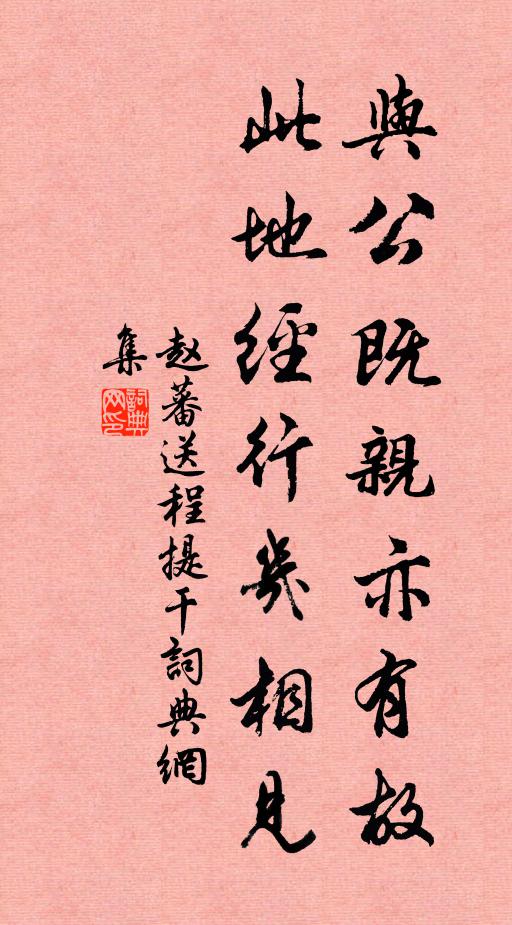 與公既親亦有故
此地經行幾相見
赵蕃送程提干詞典網
集
詞典网印